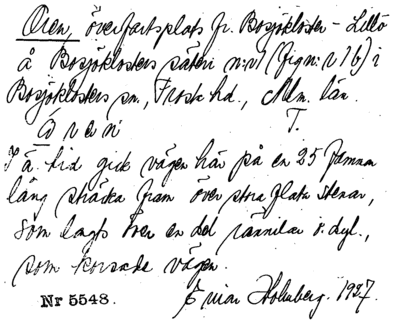 Oren, överfartsplats fr. Bosjökloster - Lillö
å Bosjöklosters säteri n:r 1 (fig n:r 1 b) i
Bosjöklosters sn., Frosta hd., Mlm. län.
T.
I ä. tid gick vägen här på en 25 famnar
lång sträcka fram över stora flata stenar,
som lagts över en del rännilar o. dyl.,
som korsade vägen.
Nr 5548. Einar Holmberg. 1927.